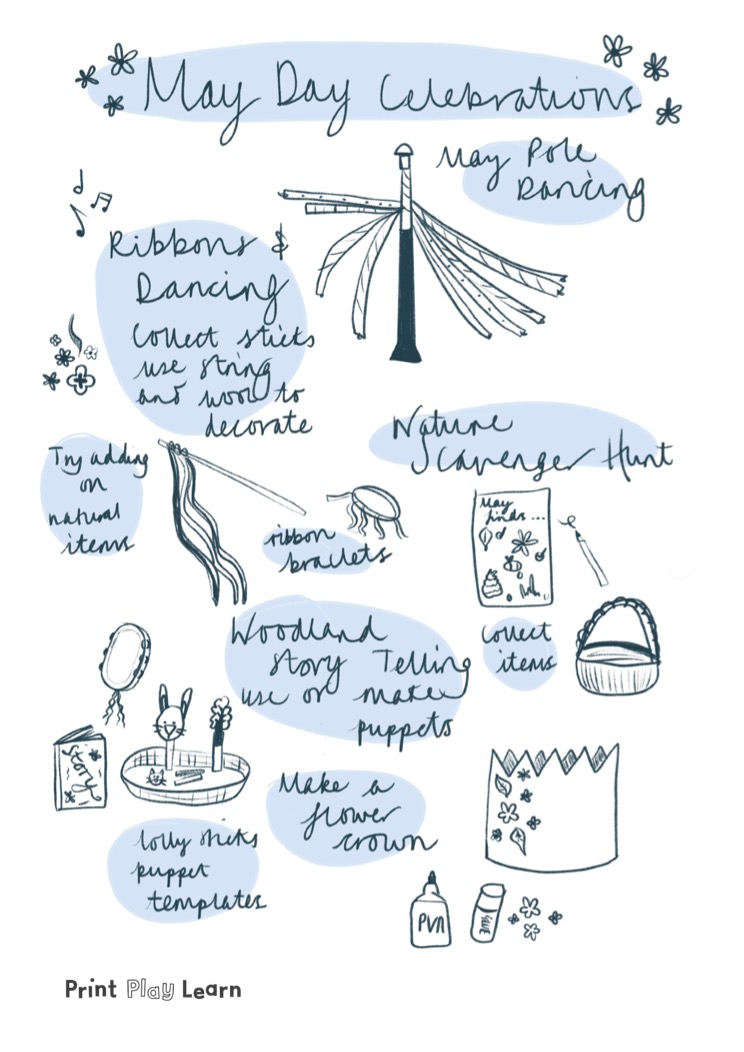 May Day Celebrations
May Pole
Dancing
Ribbons &
Dancing
Collect sticks
use string
and wool to
decorate
Nature
Scavenger Hunt
Try adding
on
natural
items
May
finds...
ribbon
braclets
Woodland
Story Telling
use or make
puppets
Collect
items
Story
Make a
flower
crown
lolly sticks
puppet
templates
PVA
GLUE
Print Play Learn